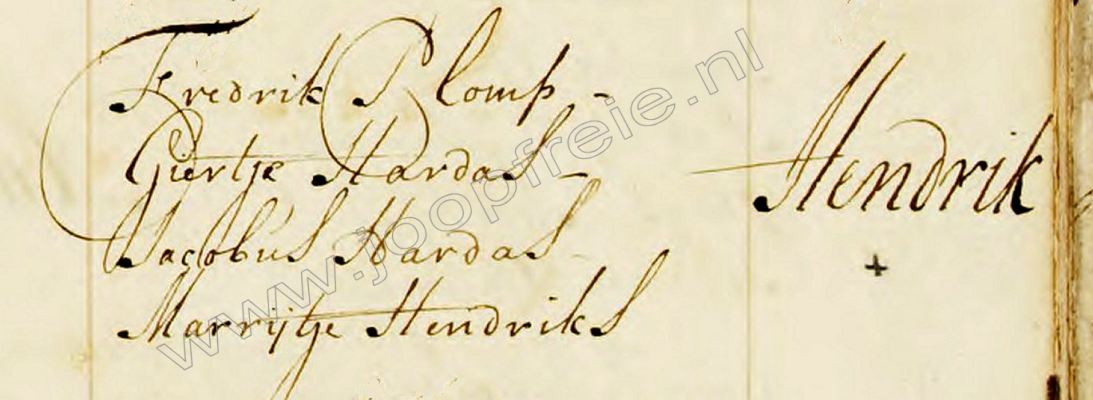 Fredrik Plomp -
Giertje Hardas -
Jacobus Hardas -
Marrijtje Hendriks
Hendrik
+
www.joopfreie.nl